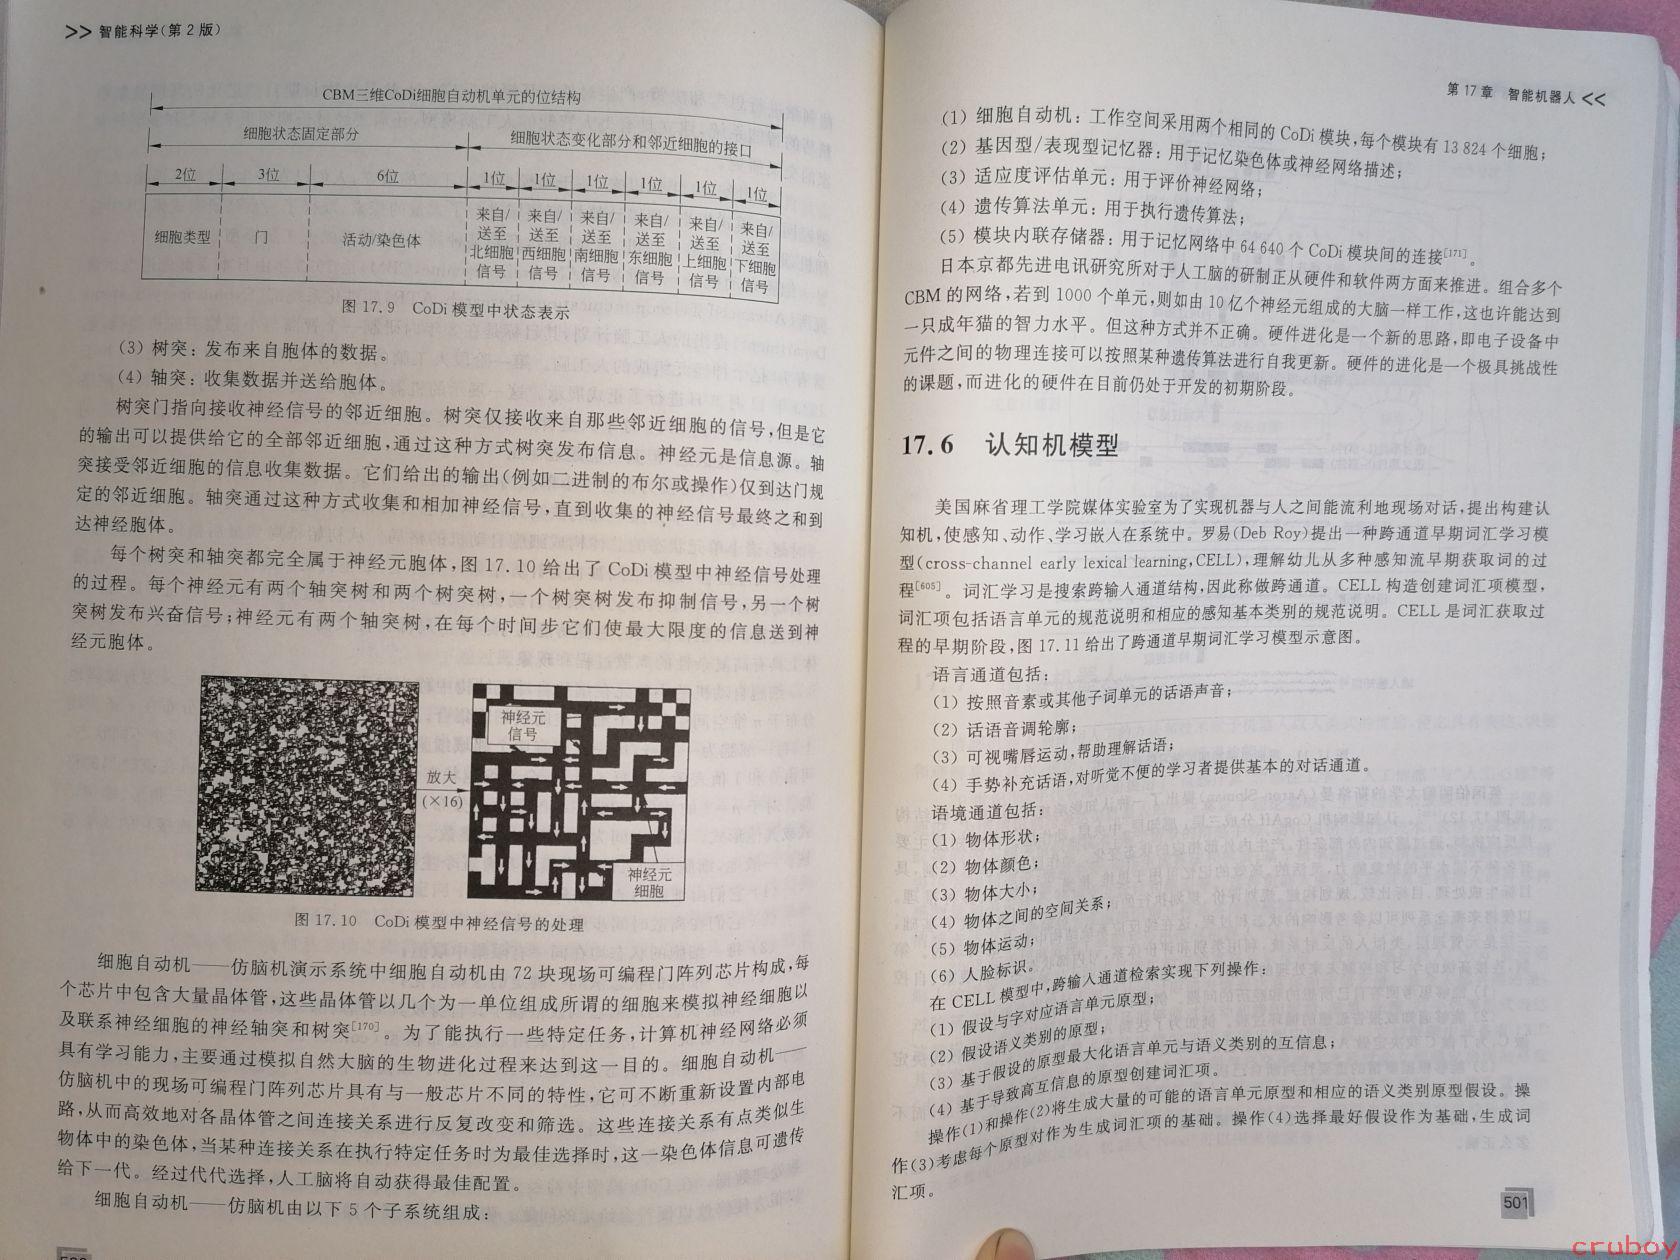 >> 智能科学(第2版)
CBM三维CoDi细胞自动机单元的位结构
细胞状态固定部分 细胞状态变化部分和邻近细胞的接口
2位 3位 6位 1位 1位 1位 1位 1位 1位
细胞类型 门 活动/染色体 来自/送至北细胞信号 来自/送至西细胞信号 来自/送至南细胞信号 来自/送至东细胞信号 来自/送至上细胞信号 来自/送至下细胞信号
图 17.9 CoDi 模型中状态表示
(3) 树突：发布来自胞体的数据。
(4) 轴突：收集数据并送给胞体。
树突门指向接收神经信号的邻近细胞。树突仅接收来自那些邻近细胞的信号,但是它
的输出可以提供给它的全部邻近细胞,通过这种方式树突发布信息。神经元是信息源。轴
突接受邻近细胞的信息收集数据。它们给出的输出(例如二进制的布尔或操作)仅到达门规
定的邻近细胞。轴突通过这种方式收集和相加神经信号,直到收集的神经信号最终之和到
达神经胞体。
每个树突和轴突都完全属于神经元胞体,图 17.10 给出了 CoDi 模型中神经信号处理
的过程。每个神经元有两个轴突树和两个树突树,一个树突树发布抑制信号,另一个树
突树发布兴奋信号;神经元有两个轴突树,在每个时间步它们使最大限度的信息送到神
经元胞体。
神经元
信号
放大
(×16)
神经元
细胞
图 17.10 CoDi 模型中神经信号的处理
细胞自动机——仿脑机演示系统中细胞自动机由 72 块现场可编程门阵列芯片构成,每
个芯片中包含大量晶体管,这些晶体管以几个为一单位组成所谓的细胞来模拟神经细胞以
及联系神经细胞的神经轴突和树突[170]。为了能执行一些特定任务,计算机神经网络必须
具有学习能力,主要通过模拟自然大脑的生物进化过程来达到这一目的。细胞自动机——
仿脑机中的现场可编程门阵列芯片具有与一般芯片不同的特性,它可不断重新设置内部电
路,从而高效地对各晶体管之间连接关系进行反复改变和筛选。这些连接关系有点类似生
物体中的染色体,当某种连接关系在执行特定任务时为最佳选择时,这一染色体信息可遗传
给下一代。经过代代选择,人工脑将自动获得最佳配置。
细胞自动机——仿脑机由以下 5 个子系统组成：
第 17 章 智能机器人 <<
(1) 细胞自动机：工作空间采用两个相同的 CoDi 模块,每个模块有 13 824 个细胞；
(2) 基因型/表现型记忆器：用于记忆染色体或神经网络描述；
(3) 适应度评估单元：用于评价神经网络；
(4) 遗传算法单元：用于执行遗传算法；
(5) 模块内联存储器：用于记忆网络中 64 640 个 CoDi 模块间的连接[171]。
日本京都先进电讯研究所对于人工脑的研制正从硬件和软件两方面来推进。组合多个
CBM 的网络,若到 1000 个单元,则如由 10 亿个神经元组成的大脑一样工作,这也许能达到
一只成年猫的智力水平。但这种方式并不正确。硬件进化是一个新的思路,即电子设备中
元件之间的物理连接可以按照某种遗传算法进行自我更新。硬件的进化是一个极具挑战性
的课题,而进化的硬件在目前仍处于开发的初期阶段。
17.6 认知机模型
美国麻省理工学院媒体实验室为了实现机器与人之间能流利地现场对话,提出构建认
知机,使感知、动作、学习嵌入在系统中。罗易(Deb Roy)提出一种跨通道早期词汇学习模
型(cross-channel early lexical learning,CELL),理解幼儿从多种感知流早期获取词的过
程[605]。词汇学习是搜索跨输入通道结构,因此称做跨通道。CELL 构造创建词汇项模型,
词汇项包括语言单元的规范说明和相应的感知基本类别的规范说明。CELL 是词汇获取过
程的早期阶段,图 17.11 给出了跨通道早期词汇学习模型示意图。
语言通道包括：
(1) 按照音素或其他子词单元的话语声音；
(2) 话语音调轮廓；
(3) 可视嘴唇运动,帮助理解话语；
(4) 手势补充话语,对听觉不便的学习者提供基本的对话通道。
语境通道包括：
(1) 物体形状；
(2) 物体颜色；
(3) 物体大小；
(4) 物体之间的空间关系；
(5) 物体运动；
(6) 人脸标识。
在 CELL 模型中,跨输入通道检索实现下列操作：
(1) 假设与字对应语言单元原型；
(2) 假设语义类别的原型；
(3) 基于假设的原型最大化语言单元与语义类别的互信息；
(4) 基于导致高互信息的原型创建词汇项。
操作(1)和操作(2)将生成大量的可能的语言单元原型和相应的语义类别原型假设。操
作(3)考虑每个原型对作为生成词汇项的基础。操作(4)选择最好假设作为基础,生成词
汇项。
501
cruboy